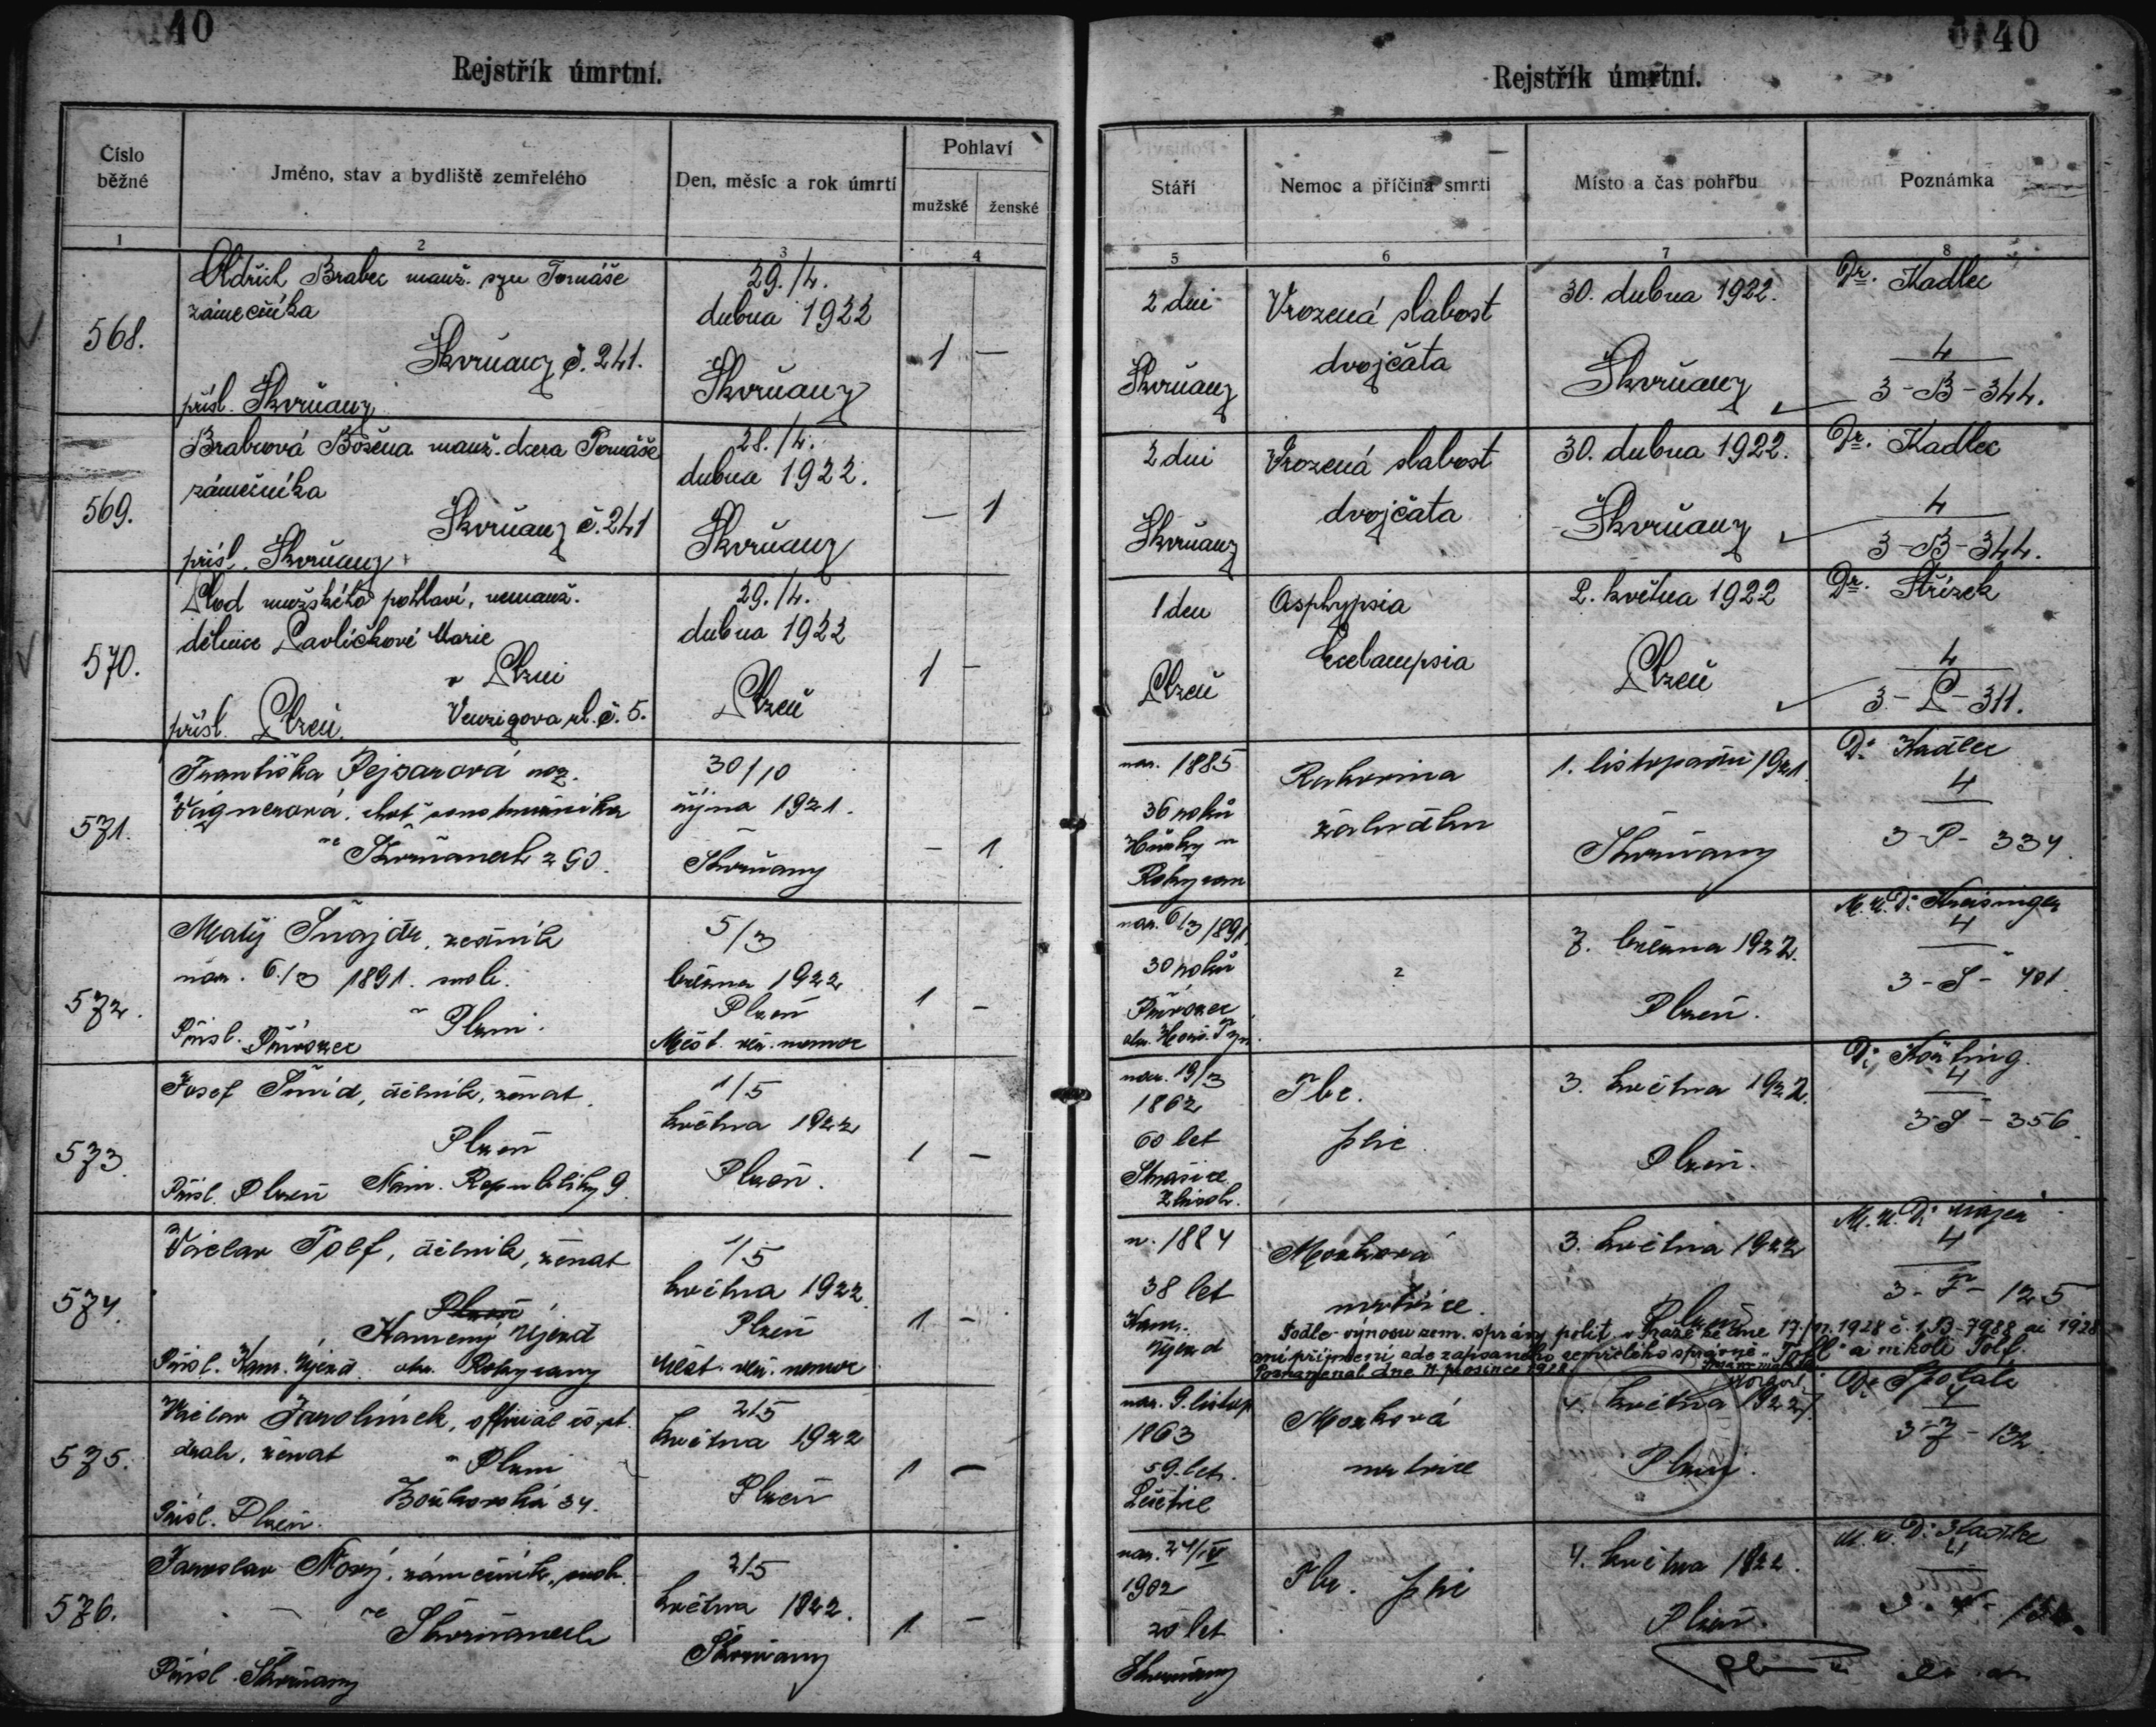 40
Rejstřík úmrtní.
Číslo běžné
Jméno, stav a bydliště zemřelého
Den, měsíc a rok úmrtí
Pohlaví
mužské
ženské
1
2
3
4
568.
Oldřich Brabec manž. syn Tomáše
zámečníka
Škvrňany č. 241.
přísl. Škvrňany
29./4.
dubna 1922
Škvrňany
1 —
569.
Brabcová Božena manž. dcera Tomáše
zámečníka
Škvrňany č. 241
přísl. Škvrňany
28./4.
dubna 1922.
Škvrňany
— 1
570.
Plod mužského pohlaví, nemanž.
dělnice Pavlíčkové Marie
v Plzni
přísl. Plzeň.
ul. č. 5.
29./4.
dubna 1922
Plzeň
1 —
571.
Františka Pejsarová roz.
Vágnerová, choť
ve Škvrňanech 290.
30/10
října 1921.
Škvrňany
— 1
572.
Matěj Šnajdr, zedník
nar. 6./3 1891. svob.
v Plzni.
Přísl. Půvozec
5/3
března 1922
Plzeň
Měst. veř. nemoc
1 —
573.
Josef Šmíd, dělník, ženat,
Plzeň
Přísl. Plzeň Nám. Republiky 9.
1/5
května 1922
Plzeň.
1 —
574.
Václav Tolf, dělník, ženat
Plzeň
Kamený Újezd
Přísl. Kam. Újezd okr. Rokycany
1/5
května 1922
Plzeň
Měst. veř. nemoc
1 —
575.
Václav Jarolímek, official čs. st.
drah, ženat
v Plzni
34.
Přísl. Plzeň.
2/5
května 1922
Plzeň
1 —
576.
Jaroslav Nový, zámečník, svob.
ve Škvrňanech
Přísl. Škvrňany
2/5
května 1922.
Škvrňany
1 —
40
Rejstřík úmrtní.
Stáří
Nemoc a příčina smrti
Místo a čas pohřbu
Poznámka
5
6
7
8
2 dni
Škvrňany
Vrozená slabost
dvojčata
30. dubna 1922.
Škvrňany
Dr. Kadlec
4
3-B-344.
2 dni
Škvrňany
Vrozená slabost
dvojčata
30. dubna 1922.
Škvrňany
Dr. Kadlec
4
3-B-344.
1 den
Plzeň
Asphyxsia
Eclampsia
2. května 1922
Plzeň
Dr. Střízek
4
3-P-311.
nar. 1885
36 roků
Rokycan
Rakovina
žaludku
1. listopadu 1921.
Škvrňany
Dr Kadlec
4
3-P-334.
nar. 6/3 1891.
30 roků
Půvozec
okr. Horš. Týn.
?
7. března 1922.
Plzeň.
M.U.Dr Kreisinger
4
3-S-401.
nar. 19/3
1862
60 let
Strašice
Zbiroh.
Tbc.
plic
3. května 1922.
Plzeň.
4
3-S-356.
n. 1884
38 let
Kam.
Újezd
Mozková
mrtvice.
3. května 1922
Plzeň
M.U.Dr Majer
4
3-T-125
Podle výnosu zem. správy polit. v Praze ze dne 17./XI. 1928 č. 1.B-7988 ai 1928
zní příjmení zde zapsaného zemřelého správně "Toll" a nikoli Tolf.
Poznamenal dne 11. prosince 1928
nar. 9. listop.
1863
59 let.
Mozková
mrtvice
4. května 1922.
Plzeň.
4
3-J-132.
nar. 24/IV
1902
20 let
Škvrňany
Tbc. plic
4. května 1922.
Plzeň.
M.U.Dr Kadlec
4